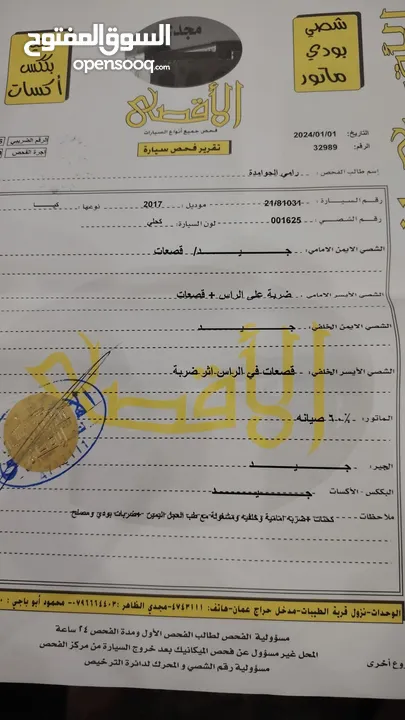 السوق المفتوح
opensooq.com
مجدي
شصي
بودي
ماتور
بكس
أكسات
الأقصى
فحص جميع أنواع السيارات
تقرير فحص سيارة
التاريخ: 2024/01/01
الرقم: 32989
الرقم الضريبي
أجرة الفحص
إسم طالب الفحص: رامي الجوابدة
رقم السيارة: 21/81031 موديل: 2017 نوعها: كيا
رقم الشصي: 001625 لون السيارة: كحلي
الشصي الأيمن الأمامي: جيد / قصعات
الشصي الأيسر الأمامي: ضربة على الراس + قصعات
الشصي الأيمن الخلفي: جيد
الشصي الأيسر الخلفي: قصعات في الراس اثر ضربة
الماتور: ٦٠٪ صيانه
الجير: جيد
البكس الأكسات: جيد
ملاحظات
الوحدات - نزول قرية الطيبات - مدخل حراج عمان - هاتف: ٤٧٤٣١١١ - مجدي الظاهر - محمود أبو ناجي
مسؤولية الفحص لطالب الفحص الأول ومدة الفحص ٢٤ ساعة
المحل غير مسؤول عن فحص الميكانيك بعد خروج السيارة من مركز الفحص
مسؤولية رقم الشصي و المحرك لدائرة الترخيص